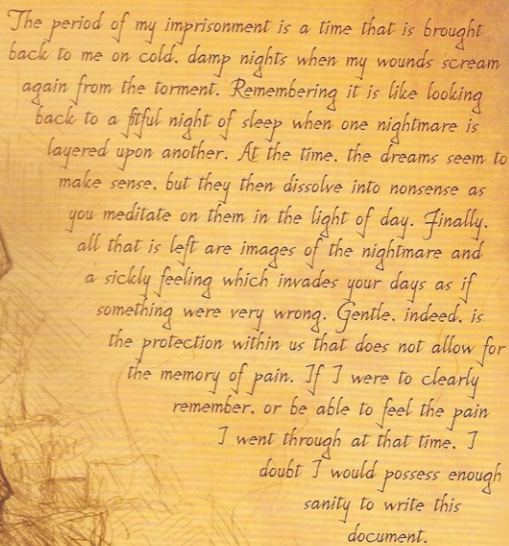 The period of my imprisonment is a time that is brought
back to me on cold, damp nights when my wounds scream
again from the torment. Remembering it is like looking
back to a fitful night of sleep when one nightmare is
layered upon another. At the time, the dreams seem to
make sense, but they then dissolve into nonsense as
you meditate on them in the light of day. Finally,
all that is left are images of the nightmare and
a sickly feeling which invades your days as if
something were very wrong. Gentle, indeed, is
the protection within us that does not allow for
the memory of pain. If I were to clearly
remember, or be able to feel the pain
I went through at that time, I
doubt I would possess enough
sanity to write this
document.